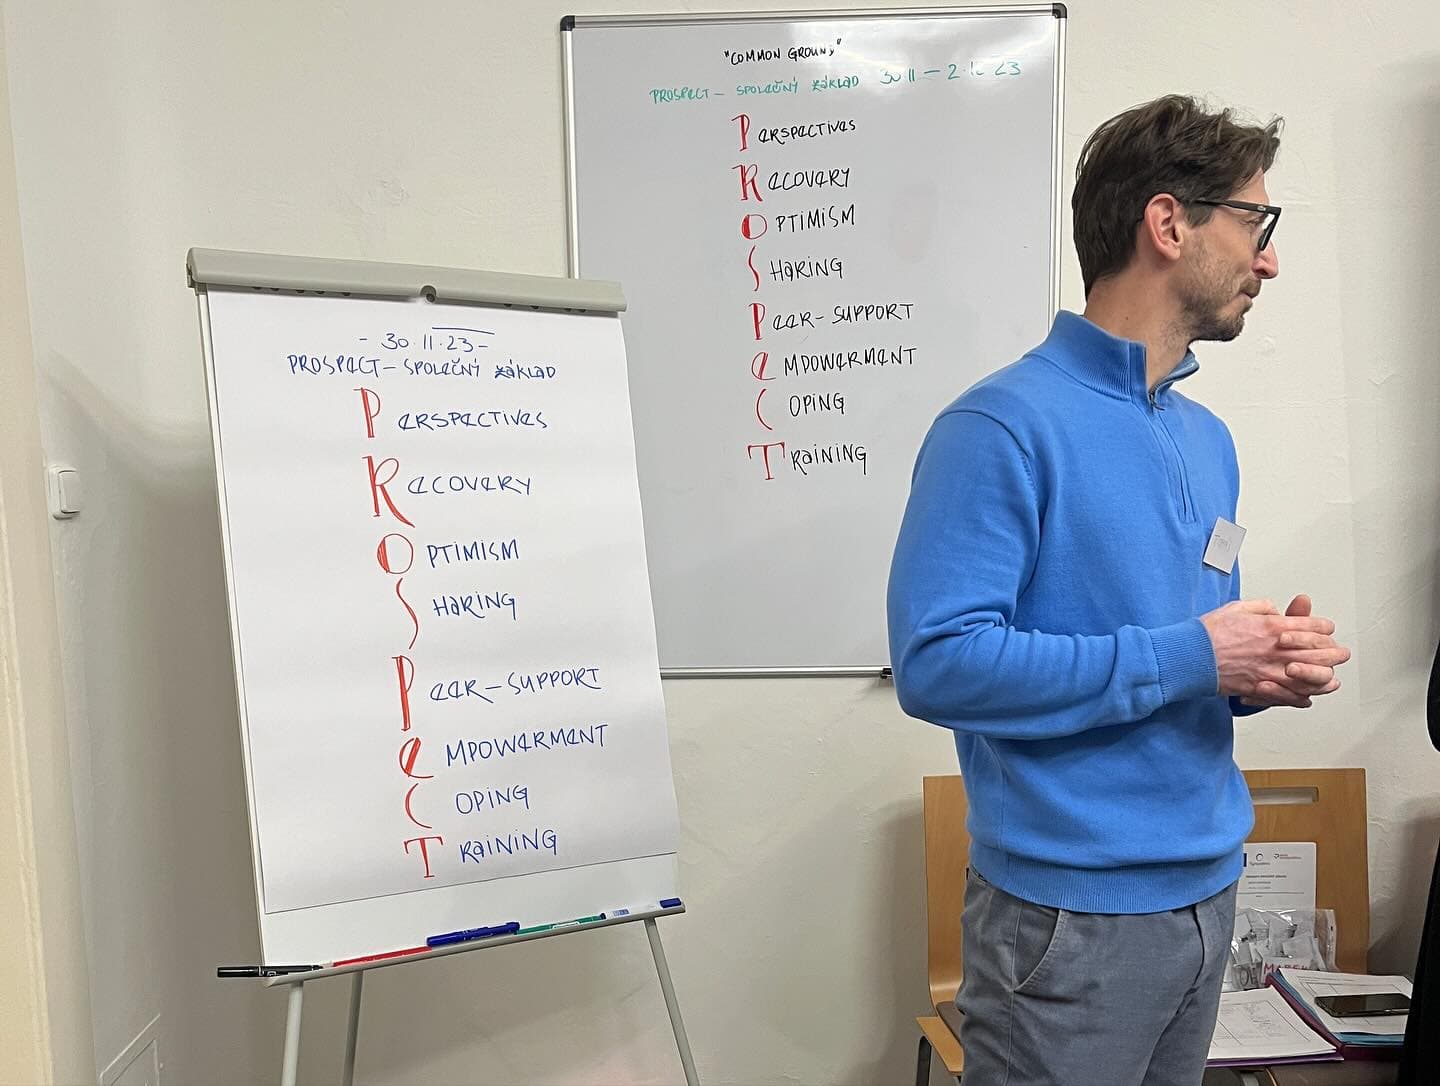 - 30.11.23 -
PROSPECT – SPOLEČNÝ ZÁKLAD
PERSPECTIVES
RECOVERY
OPTIMISM
SHARING
PEER-SUPPORT
EMPOWERMENT
COPING
TRAINING
"COMMON GROUND"
PROSPECT – SPOLEČNÝ ZÁKLAD 30 11 – 2. 23
PERSPECTIVES
RECOVERY
OPTIMISM
SHARING
PEER-SUPPORT
EMPOWERMENT
COPING
TRAINING
MAREK